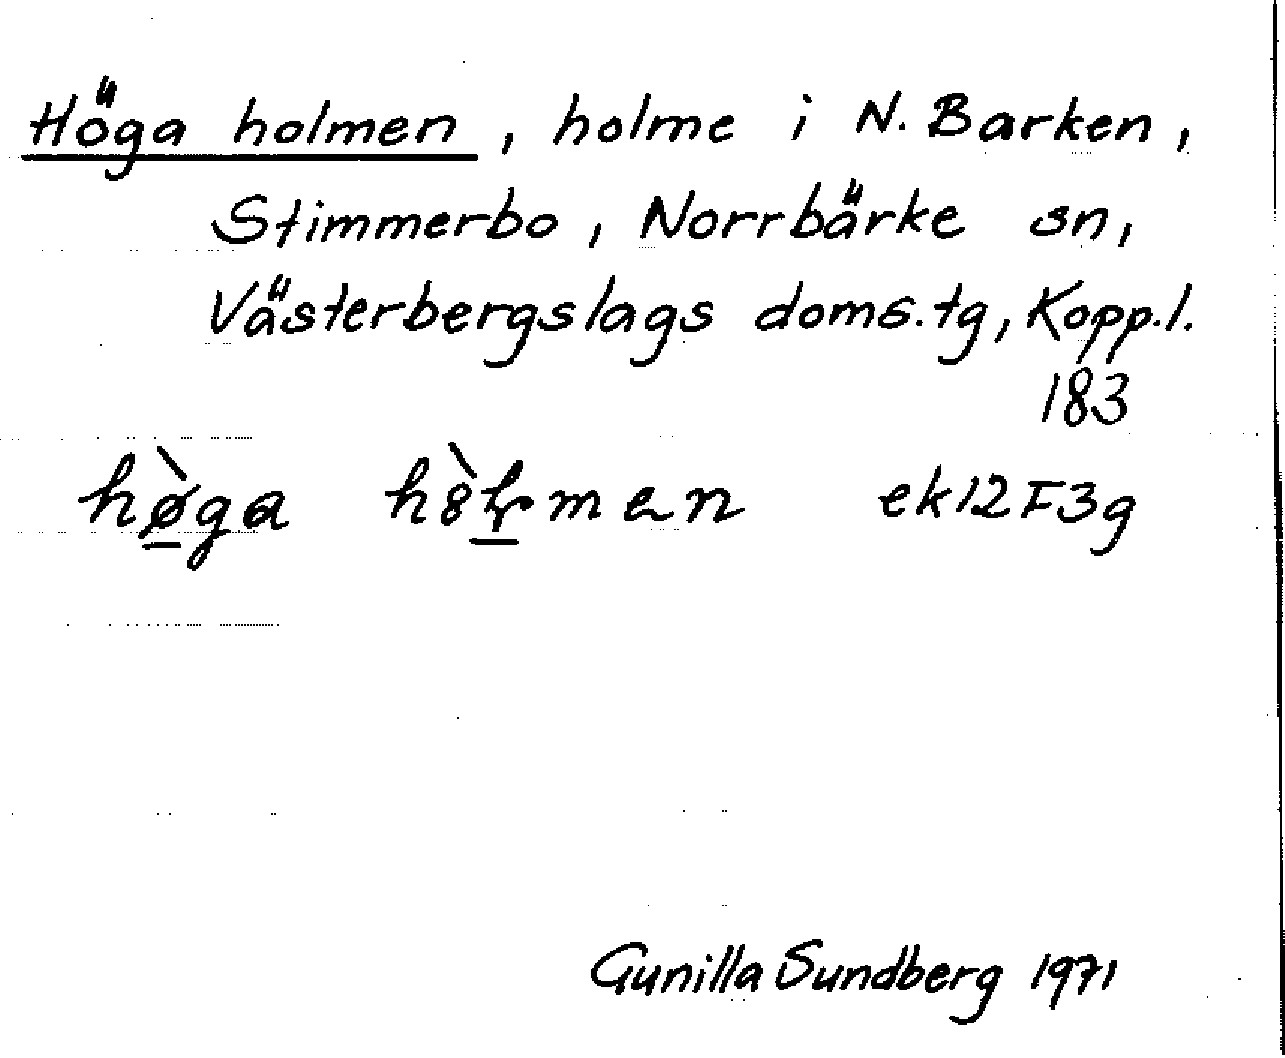 Höga holmen, holme i N. Barken,
Stimmerbo, Norrbärke sn,
Västerbergslags doms.tg, Kopp.l.
183
hø̀ga ek12F3g
Gunilla Sundberg 1971